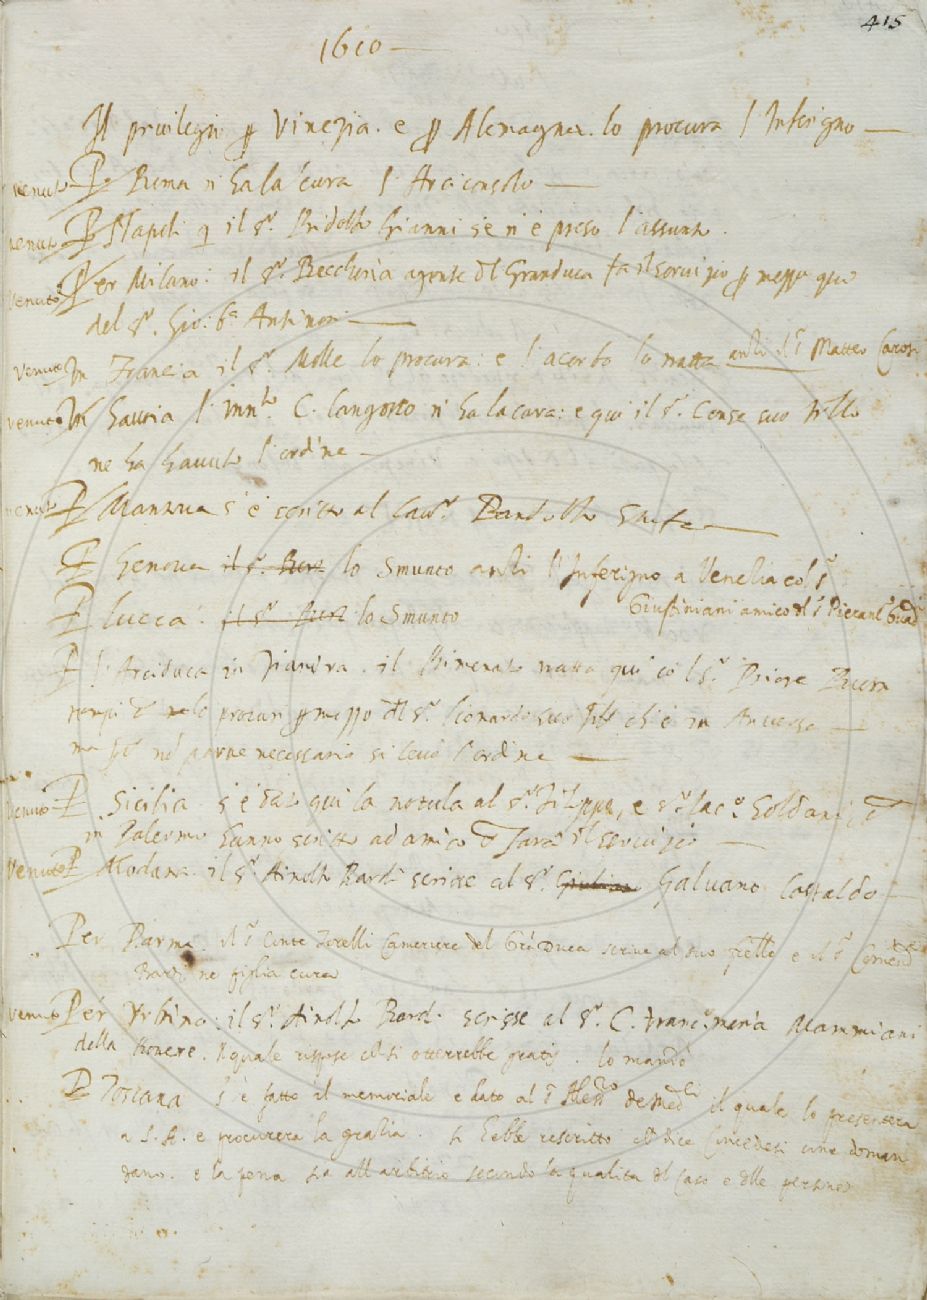 415
1610
Il privilegii p Vinezia. e p Alemagna. lo procura l'Inferigno
venuto P Roma n'ha la cura l'Arciconsolo
venuto P Napoli il S.r Ridolfo se n'è preso l'assunto.
venuto Per Milano: il S.r Beccheria agente del Granduca fa il servizio p mezzo que
del S.r Gio: ba Antinori
venuto In Francia il S.r Molle lo procura: e l'acerbo lo tratta il S.r Matteo
venuto P Savoia l' C. Langosco n'ha la cura: e qui il S.r Conte suo frello
ne ha havuto l'ordine
venuto P Mantova s'è scritto al Cav.r Pandolfo Stufa
P Genova il S.r lo Smunto l'Inferigno a Venetia col S.r
Giustiniani amico del S.r Pierant.o
P Lucca: il S.r lo Smunto
P l'Arciduca in Fiandra. il Rimenato tratta qui col S.r Priore
procuri p mezzo del S.r Lionardo suo ch'è in Anversa
ma poi nō parve necessario si levò l'ordine
venuto P Sicilia s'è dato qui la notula al S.r Filippo, e S.r Iac.o Soldani, e
in Palermo hanno scritto ad amico che farà il servizio
venuto P Modana. il S.r Ainolfo Bardi scrisse al S.r Giuliano Galvano Castaldo
Per Parma. il S.r Conte Torelli Cameriere del Grā Duca scrive al suo frello e il S.r
Bardi ne piglia cura
venuto Per Urbino. il S.r Ainolfo Bardi scrisse al S.r C. Franc.o maria Mammiani
della Rovere. Il quale rispose che si otterrebbe gratis. lo mandò
P Toscana s'è fatto il memoriale e dato al S.r Aless.o de Medici il quale lo presenterà
a S. A. e procurerà la gratia. si hebbe rescritto che dice Concedesi come doman
dano. e la pena sia all'arbitrio secondo la qualità del caso e delle persone